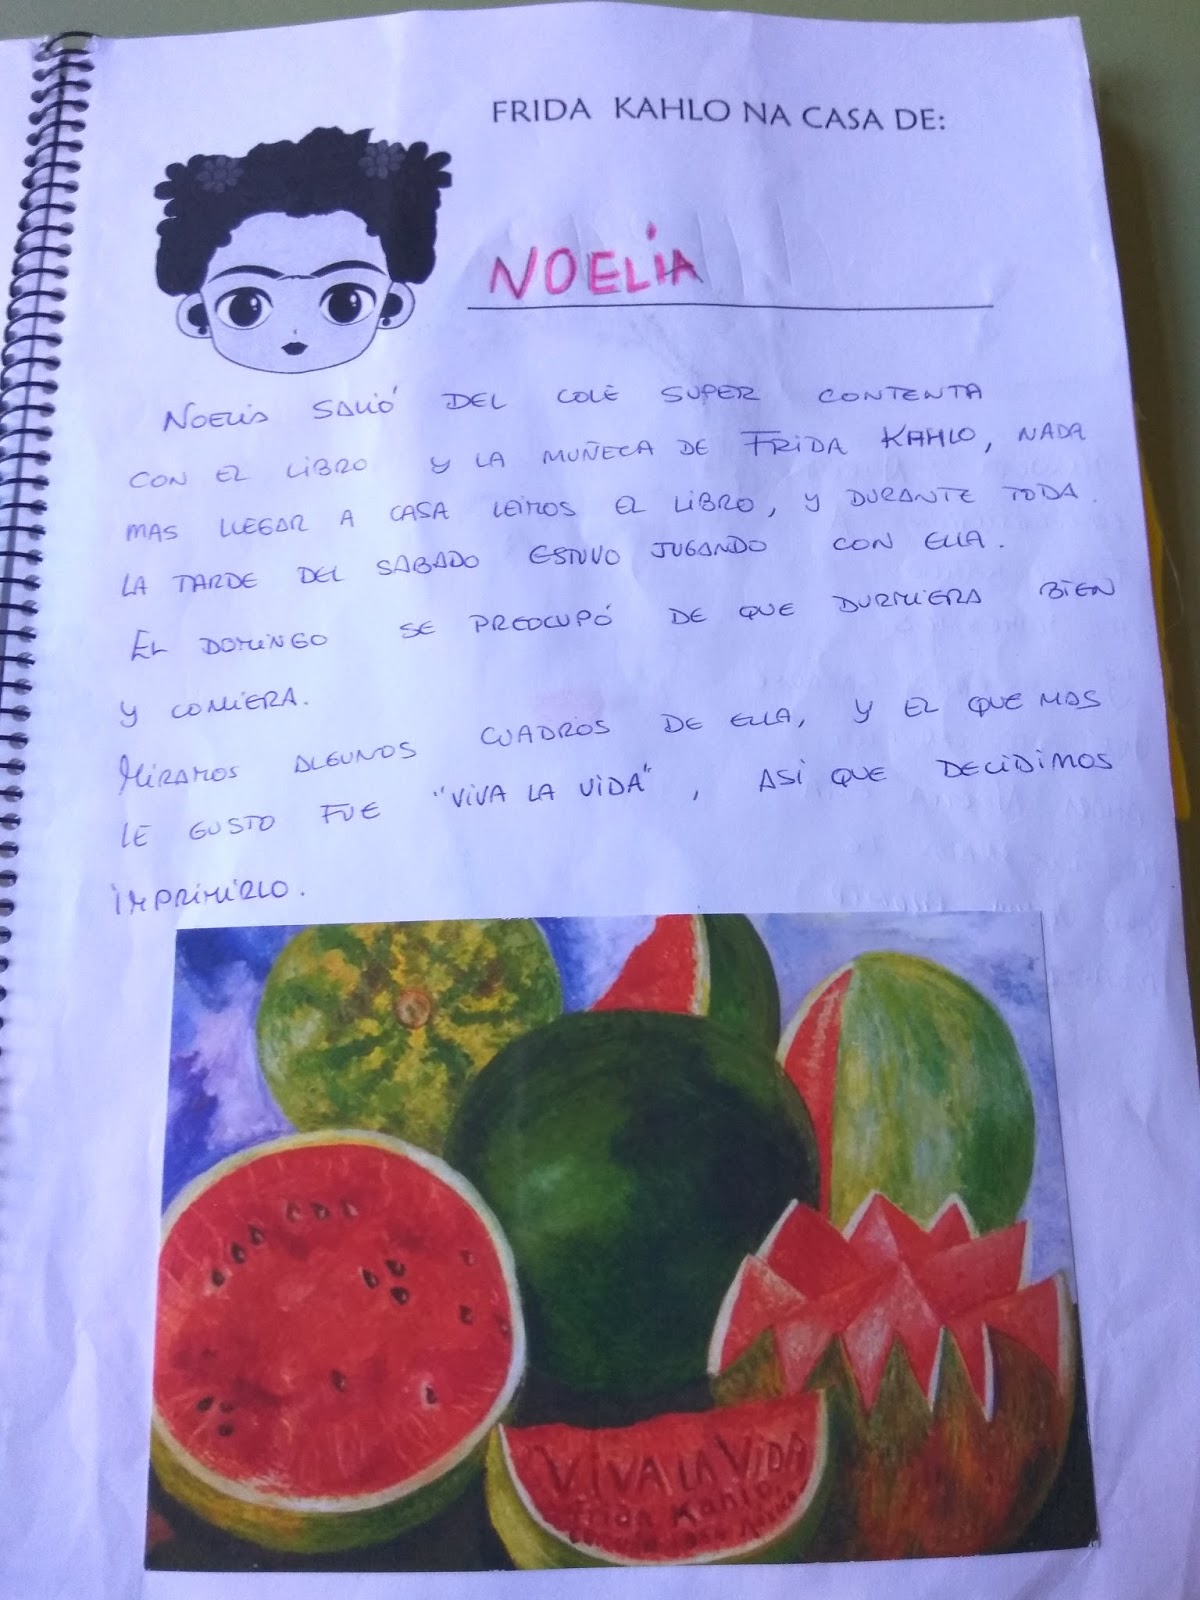 FRIDA KAHLO NA CASA DE:
NOELIA
NOELIA SALIÓ DEL COLE SUPER CONTENTA
CON EL LIBRO Y LA MUÑECA DE FRIDA KAHLO, NADA
MAS LLEGAR A CASA LEIMOS EL LIBRO, Y DURANTE TODA
LA TARDE DEL SABADO ESTUVO JUGANDO CON ELLA.
EL DOMINGO SE PREOCUPÓ DE QUE DURMIERA BIEN
Y COMIERA.
MIRAMOS ALGUNOS CUADROS DE ELLA, Y EL QUE MAS
LE GUSTO FUE "VIVA LA VIDA", ASI QUE DECIDIMOS
IMPRIMIRLO.
VIVA LA VIDA
Frida Kahlo.